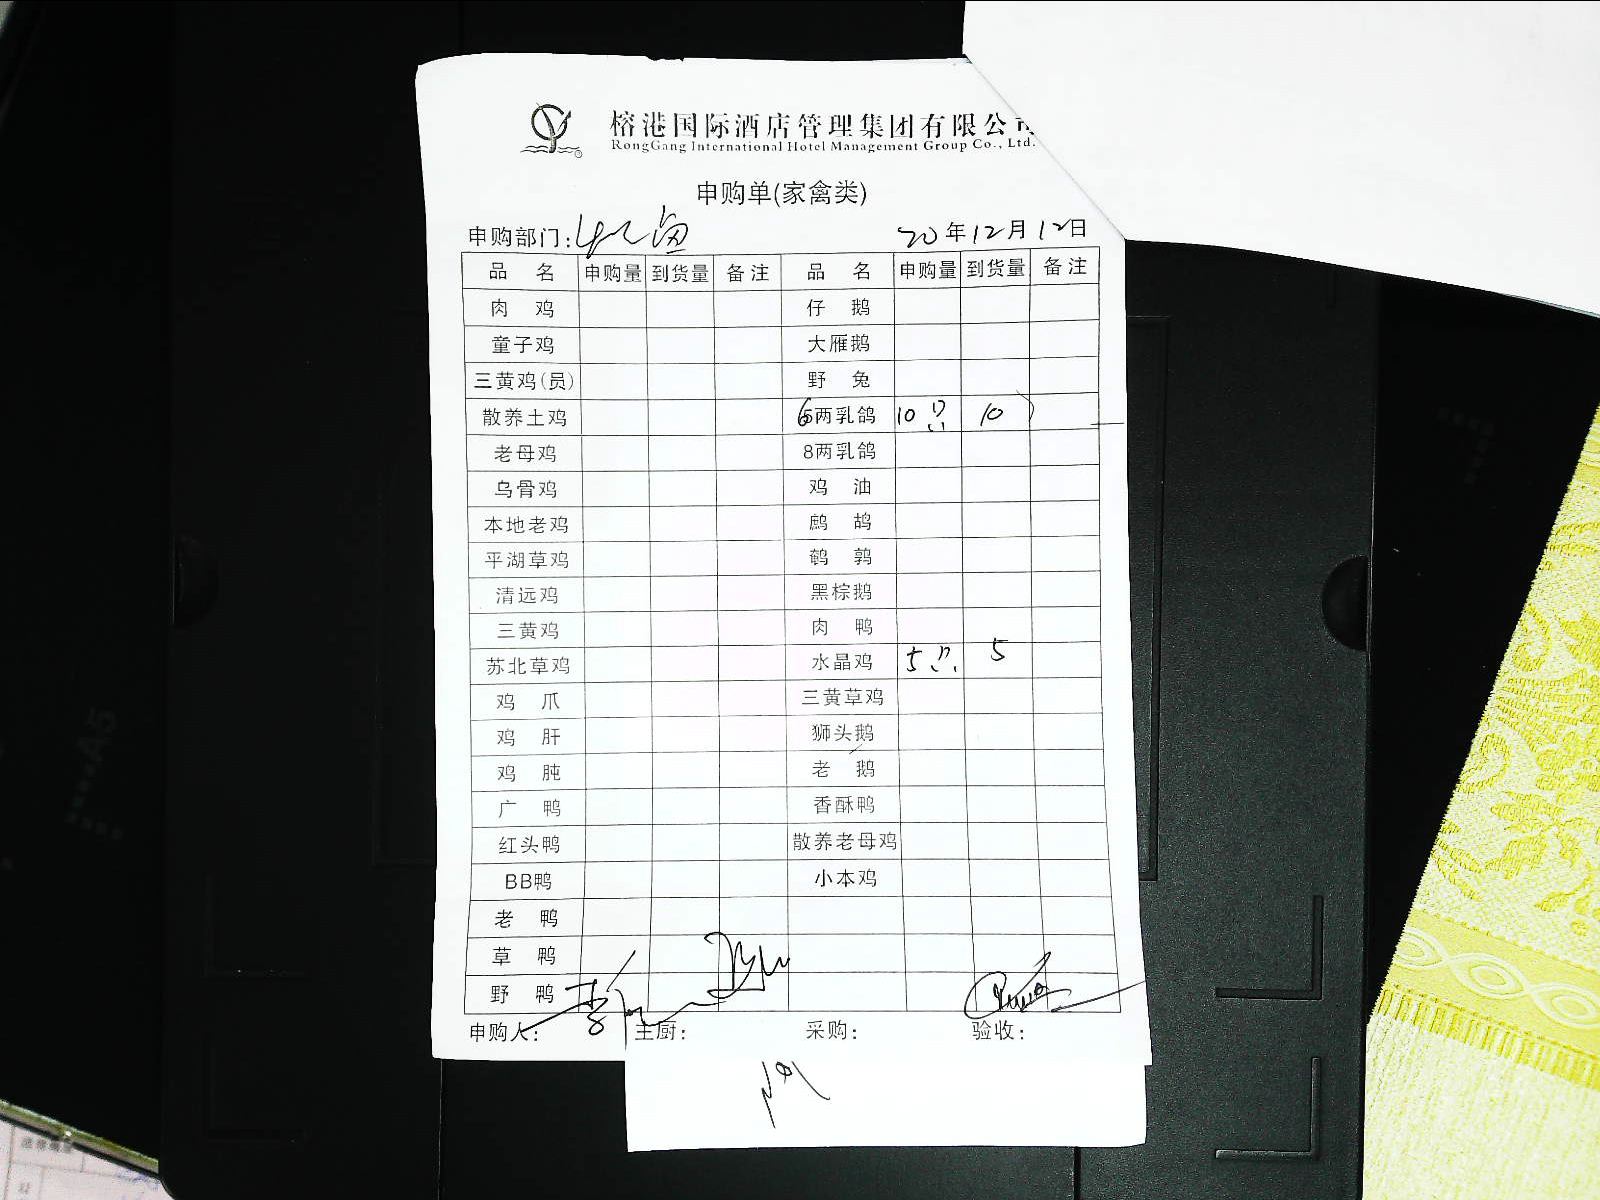 榕港国际酒店管理集团有限公司
RongGang International Hotel Management Group Co., Ltd.
申购单(家禽类)
申购部门:
20年12月12日
品 名 申购量 到货量 备注 品 名 申购量 到货量 备注
肉 鸡 仔 鹅
童子鸡 大雁鹅
三黄鸡(员) 野 兔
散养土鸡 6两乳鸽 10只 10
老母鸡 8两乳鸽
乌骨鸡 鸡 油
本地老鸡 鹧 鸪
平湖草鸡 鹌 鹑
清远鸡 黑棕鹅
三黄鸡 肉 鸭
苏北草鸡 水晶鸡 5只 5
鸡 爪 三黄草鸡
鸡 肝 狮头鹅
鸡 肫 老 鹅
广 鸭 香酥鸭
红头鸭 散养老母鸡
BB鸭 小本鸡
老 鸭
草 鸭
野 鸭
申购人: 主厨: 采购: 验收: